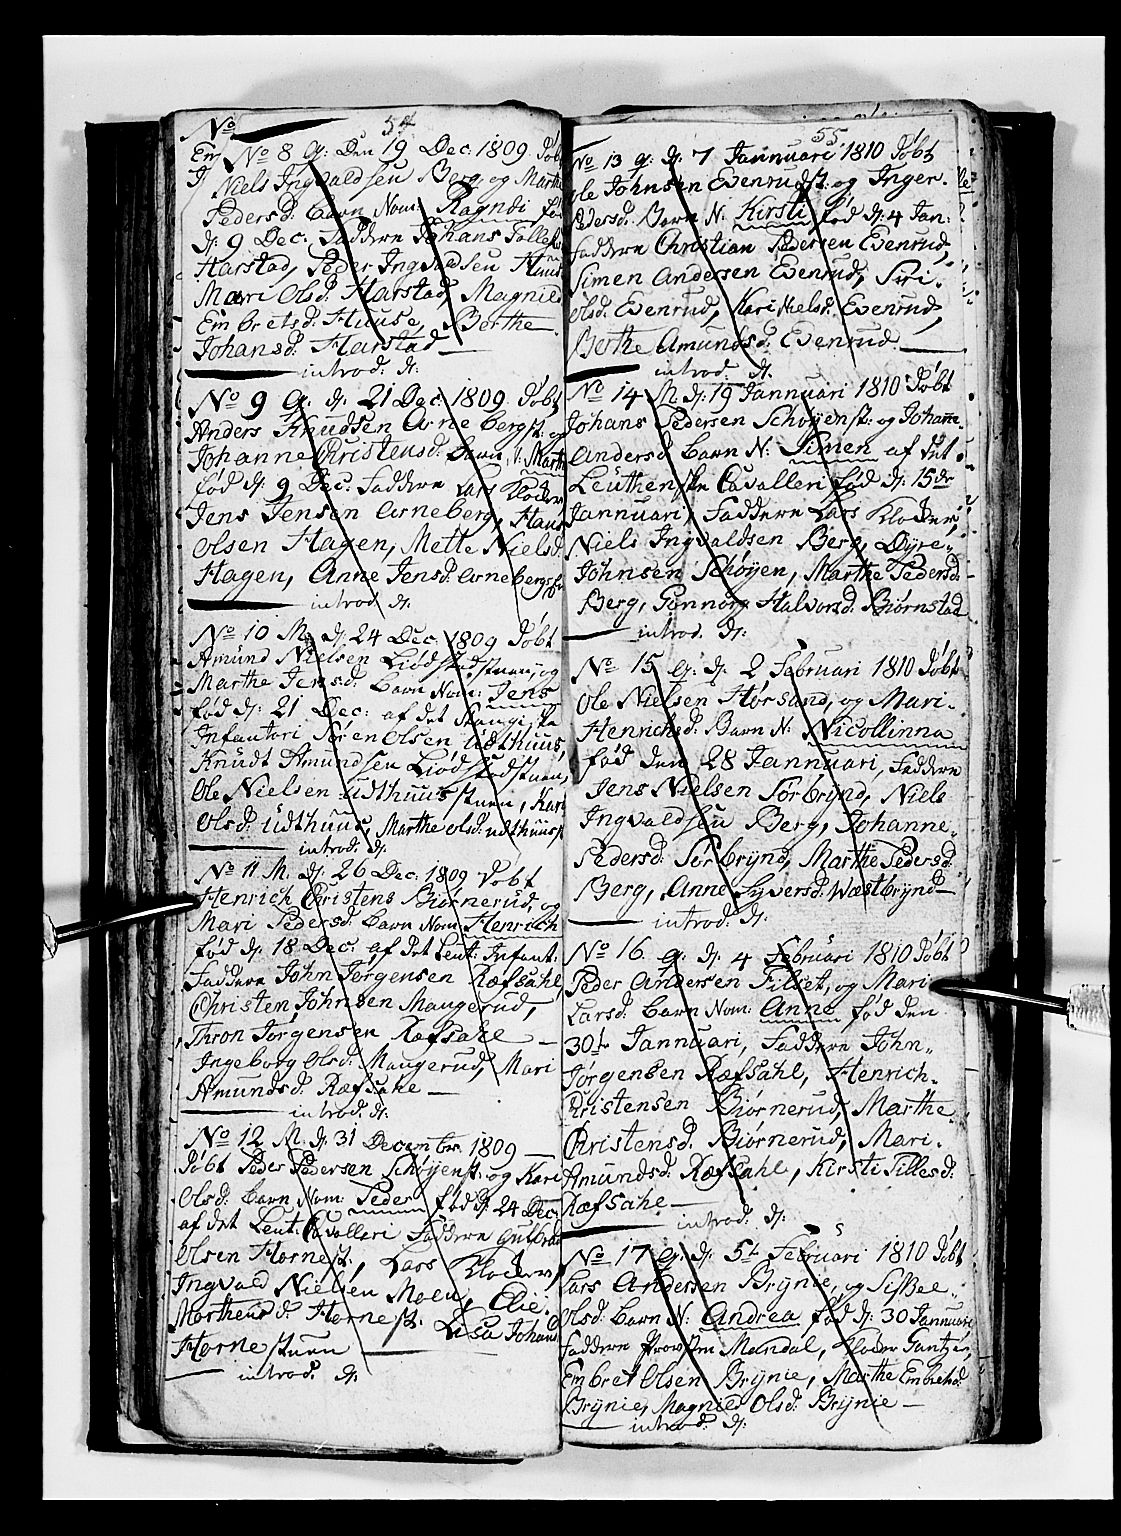 54
No
No 8 G: Den 19 Dec: 1809 Døbt
Niels Ingvaldsen Berg og Marthe
Pedersd: Barn Nom: Ragndi fød
d: 9 Dec: Faddere Johans Tollefs
Harstad, Peder Ingvaldsen Huus
Mari Olsd: Harstad, Magnild
Embretsd: Huuse, Berthe
Johansd: Harstad
introd: d:
No 9 G. d: 21 Dec: 1809 Døbt
Anders Knudsen Arneberg st: og
Johanne Christensd: Barn N: Marth
fød d: 9 Dec: Faddere Lars Kloder
Jens Jensen Arneberg, Hans
Olsen Hagen, Mette Nielsd:
Hagen, Anne Jensd: Arneberg
introd d:
No 10 M. d: 24 Dec: 1809 Døbt
Amund Nielsen Liødstedstuen, og
Marthe Jensd: Barn Nom: Jens
fød d: 21 Dec: af det Stangiske
Infantori Søren Olsen Udthuus,
Knudt Amundsen Liødstedstuen,
Ole Nielsen Udthuusstuen, Kari
Olsd: Udthuus, Marthe Olsd: Udthuus
introd: d:
No 11 M. d: 26 Dec: 1809 Døbt
Henrich Christens Biørnerud, og
Mari Pedersd: Barn Nom: Henrich
fød d: 18 Dec: af det Leut: Infant:
Faddere John Jørgensen Ræfsahl,
Christen Johnsen Maugerud,
Thron Jørgensen Ræfsahl
Ingeborg Olsd: Maugerud, Mari
Amundsd: Ræfsahl
introd: d:
No 12 M. d: 31 Decembr: 1809
Døbt Peder Pedersen Schøyen st: og Kari
Olsd: Barn Nom: Peder fød d: 24 Dec:
af det Leut: Cavalleri Faddere Gulbrand
Olsen Horne st:, Lars Kloder,
Ingvald Nielsen Moen, Elie
Marthend: Horne st. Lisa Johans
Horne stuen
introd: d:
55
No 13 G: d: 7 Jannuari 1810 Døbt
Ole Johnsen Evenrud st: og Inger
Pedersd: Barn N: Kirsti fød d: 4 Jan:
Faddere Christian Pedersen Evenrud,
Simen Andersen Evenrud, Siri
Olsd: Evenrud, Kari Nielsd: Evenrud,
Berthe Amundsd: Evenrud
introd: d:
No 14 M. d: 19 Jannuari 1810 Døbt
Johans Pedersen Schøyen st: og Johanne
Andersd: Barn N: Simen af det
Leuthenske Cavalleri fød d: 15de
Jannuari, Faddere Lars Kloder,
Niels Ingvaldsen Berg, Dyre
Johnsen Schøyen, Marthe Pedersd:
Berg, Gunnor Halvorsd: Biørnstad
introd: d:
No 15 G: d: 2 Februari 1810 Døbt
Ole Nielsen Hørsand, og Mari
Henrichsd: Barn N: Nicollinna
fød den 28 Jannuari, Faddere
Jens Nielsen Sørbrynd, Niels
Ingvaldsen Berg, Johanne
Pedersd: Sørbrynd, Marthe Pedersd:
Berg, Anne Syversd: Wæstbrynd
introd: d:
No 16. G. d: 4 Februari 1810 Døbt
Peder Andersen Filset, og Mari
Larsd: Barn Nom: Anne fød den
30te Jannuari, Faddere John
Jørgensen Ræfsahl, Henrich
Christensen Biørnerud, Marthe
Christensd: Biørnerud, Mari
Amundsd: Ræfsahl, Kirsti Tillesd:
Ræfsahl
introd: d:
No 17 G: d: 5te Februari 1810 Døbt
Lars Andersen Brynie, og Sissel
Olsd: Barn N: Andrea fød d: 30 Januari
Faddere Mandal, Kloder Gantzer,
Embret Olsen Brynie, Marthe Embretsd:
Brynie, Magnild Olsd: Brynie
introd: d: